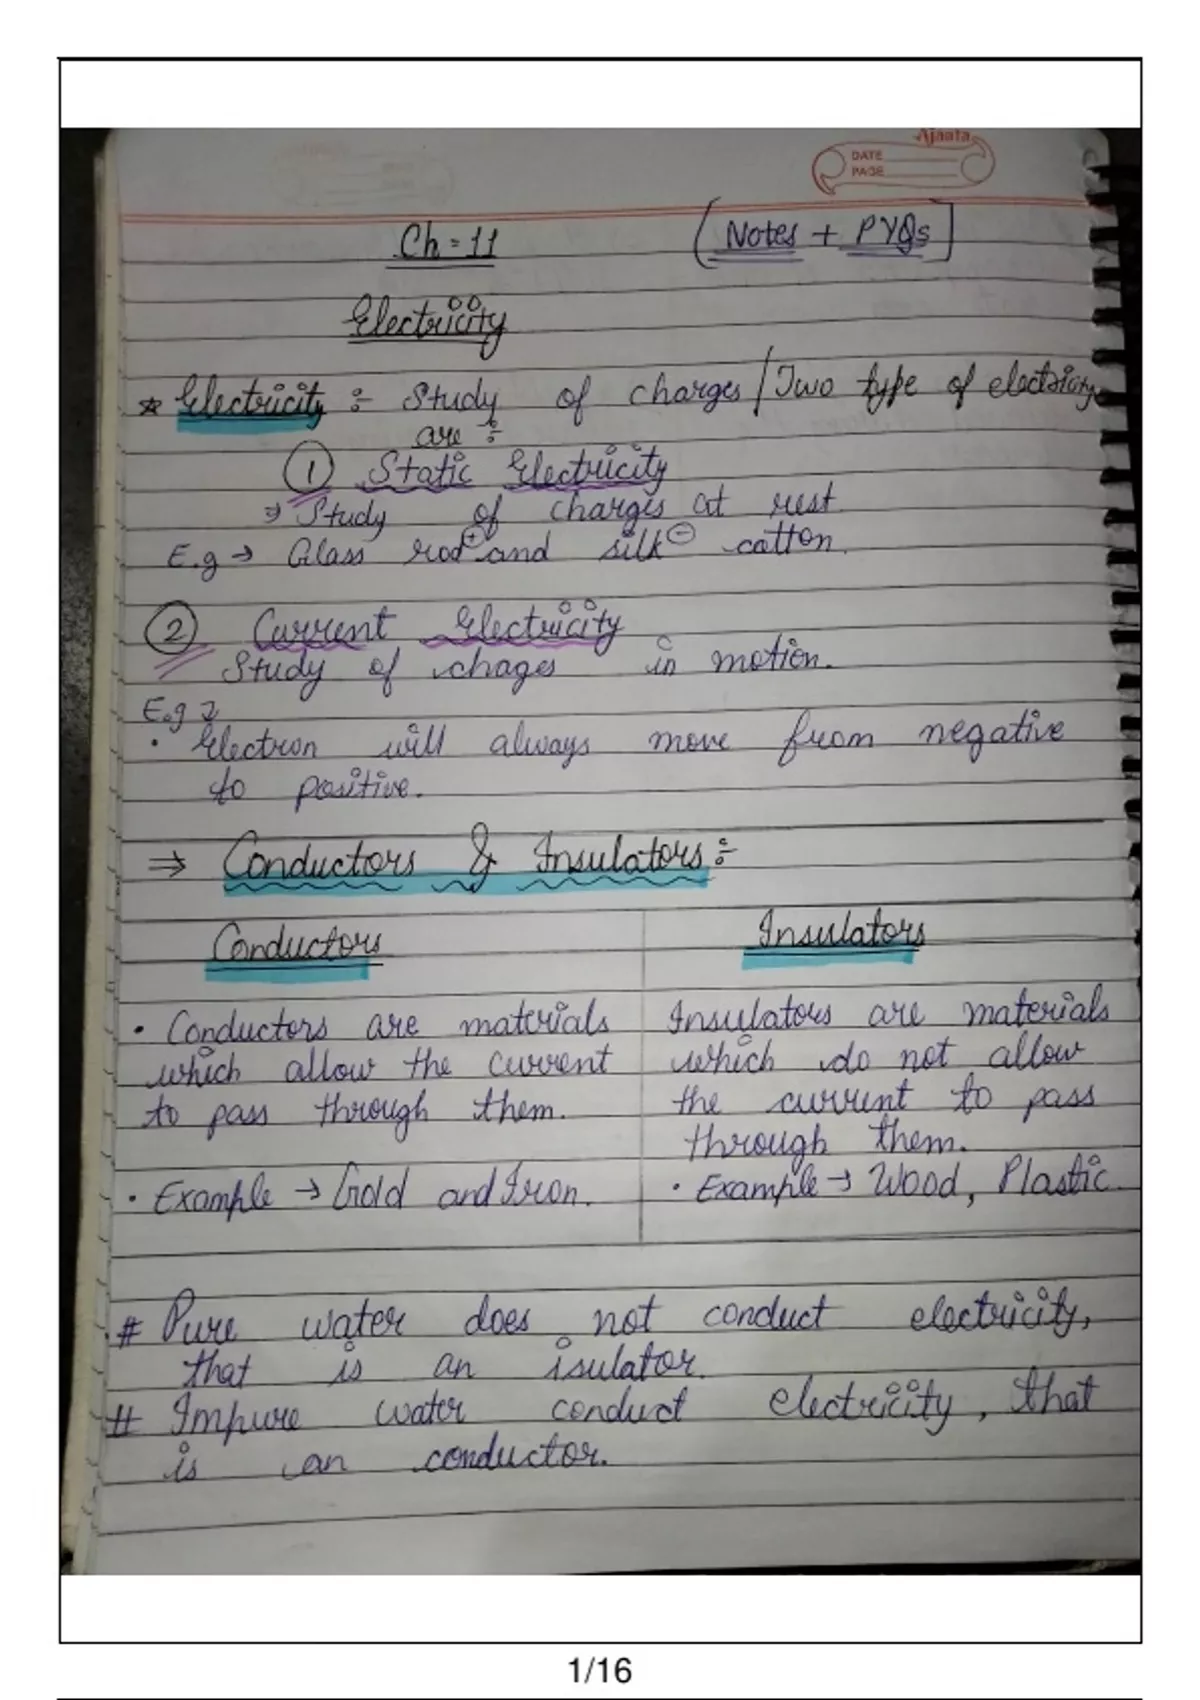 Ajanta
DATE
PAGE
Ch = 11
[Notes + PYQs]
Electricity
* Electricity ÷ Study of charges / Two type of electricity
are ÷
① Static Electricity
⇒ Study of charges at rest
E.g → Glass rod⊕ and silk⊖ cotton.
② Current Electricity
Study of chages in motion.
E.g
• Electron will always move from negative
to positive.
⇒ Conductors & Insulators ÷
Conductors Insulators
• Conductors are materials Insulators are materials
which allow the current which do not allow
to pass through them. the current to pass
through them.
• Example → Gold and Iron. • Example → Wood, Plastic.
# Pure water does not conduct electricity,
that is an isulator.
# Impure water conduct electricity, that
is an conductor.
1/16